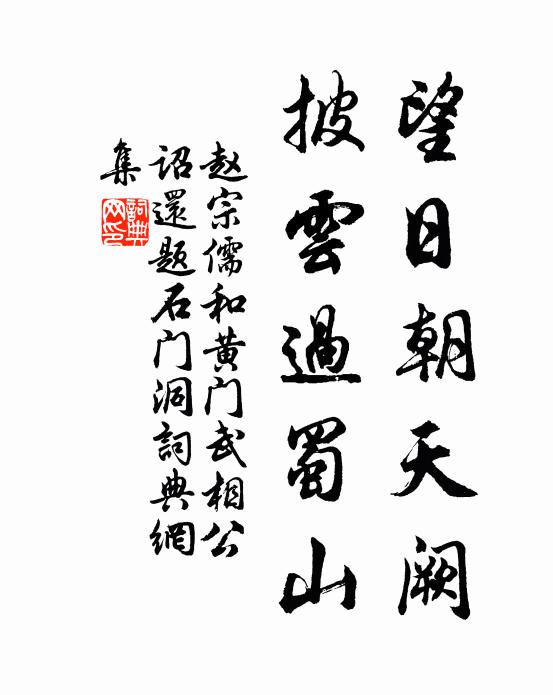 望日朝天阙
披雲過蜀山
赵宗儒和黄门武相公
诏還题石门洞詞典網
集
詞典
网印